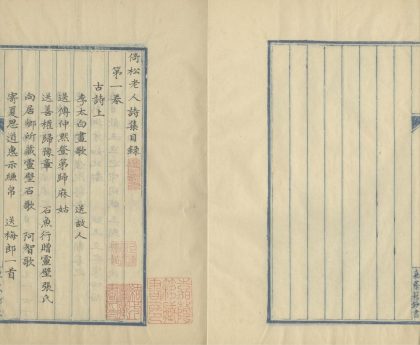 倚松老人詩集目錄
第一卷
古詩上
李太白畫歌 送故人
送傅仲熙登第歸麻姑
送善權歸豫章 石魚行贈靈壁張氏
向居卿所藏靈壁石歌 阿智歌
寄夏思道惠示縑帛 送梅郎一首